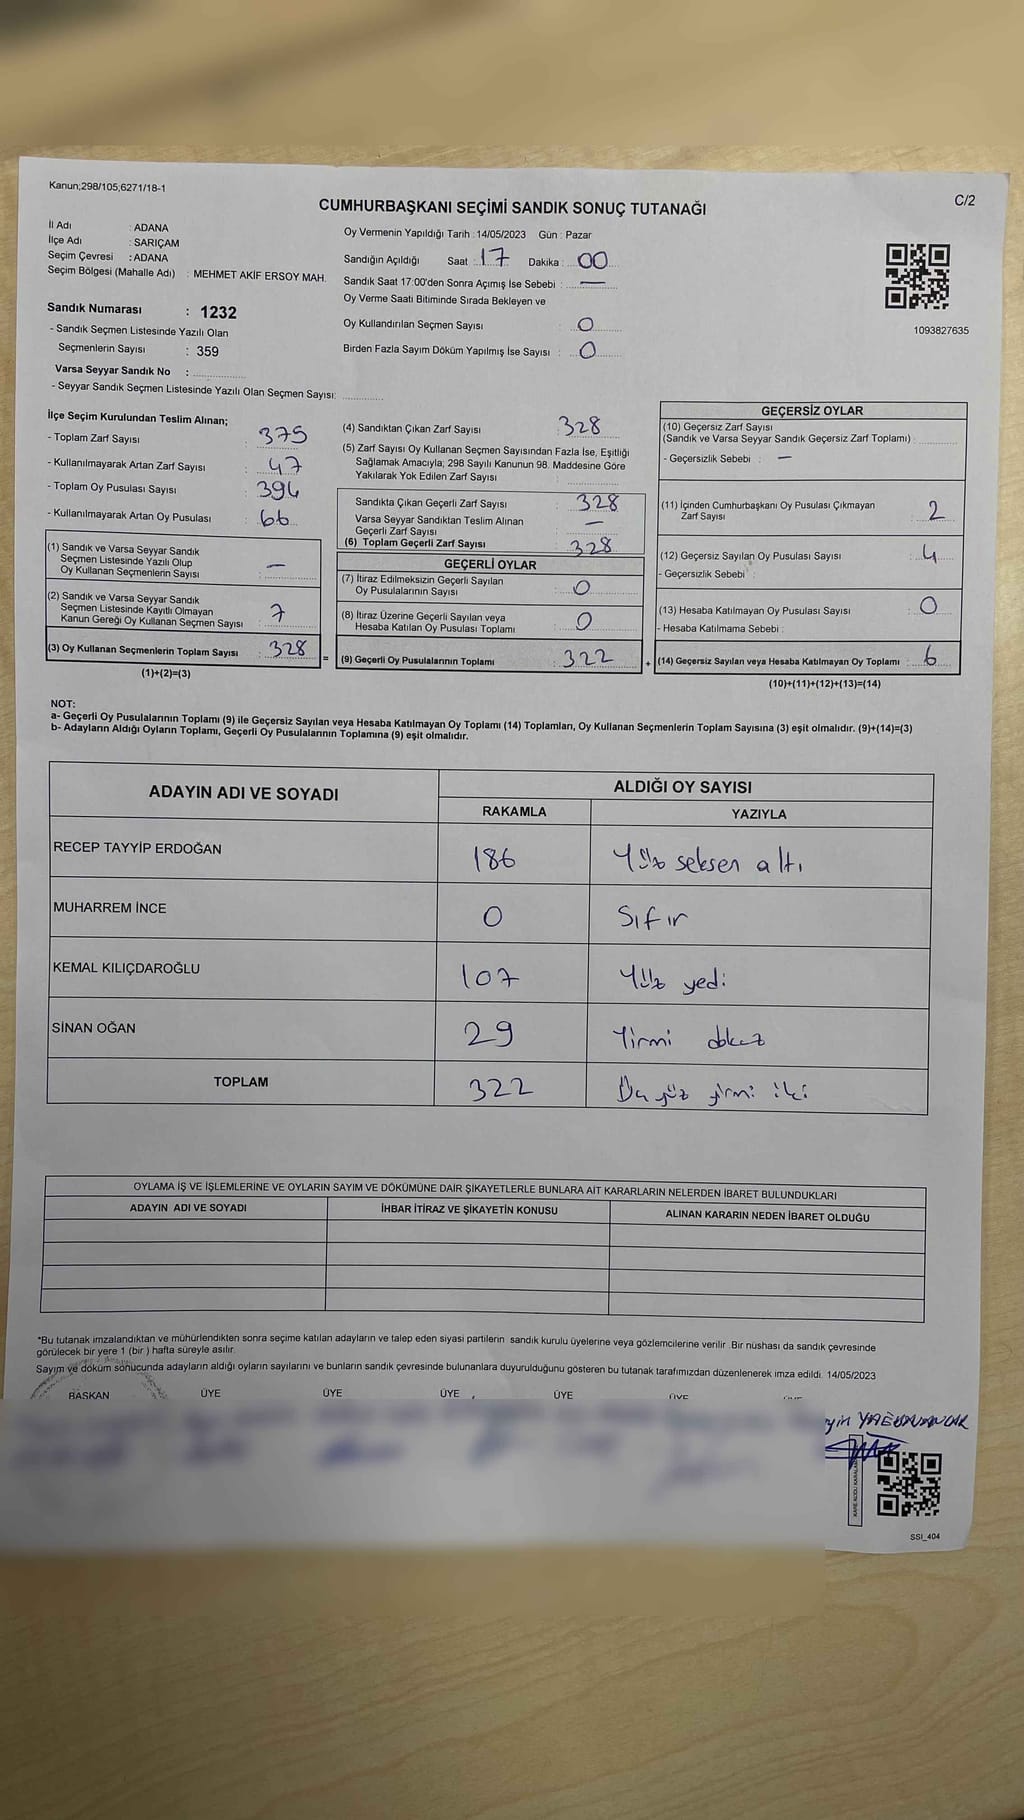 Kanun;298/105;6271/18-1
C/2
CUMHURBAŞKANI SEÇİMİ SANDIK SONUÇ TUTANAĞI
İl Adı : ADANA
İlçe Adı : SARIÇAM
Seçim Çevresi : ADANA
Seçim Bölgesi (Mahalle Adı) : MEHMET AKİF ERSOY MAH.
Sandık Numarası : 1232
- Sandık Seçmen Listesinde Yazılı Olan
Seçmenlerin Sayısı : 359
Varsa Seyyar Sandık No :
- Seyyar Sandık Seçmen Listesinde Yazılı Olan Seçmen Sayısı:
Oy Vermenin Yapıldığı Tarih : 14/05/2023 Gün : Pazar
Sandığın Açıldığı Saat : 17 Dakika : 00
Sandık Saat 17:00'den Sonra Açımış İse Sebebi : —
Oy Verme Saati Bitiminde Sırada Bekleyen ve
Oy Kullandırılan Seçmen Sayısı : 0
Birden Fazla Sayım Döküm Yapılmış İse Sayısı : 0
1093827635
İlçe Seçim Kurulundan Teslim Alınan;
- Toplam Zarf Sayısı : 375
- Kullanılmayarak Artan Zarf Sayısı : 47
- Toplam Oy Pusulası Sayısı : 394
- Kullanılmayarak Artan Oy Pusulası : 66
(1) Sandık ve Varsa Seyyar Sandık
Seçmen Listesinde Yazılı Olup
Oy Kullanan Seçmenlerin Sayısı : —
(2) Sandık ve Varsa Seyyar Sandık
Seçmen Listesinde Kayıtlı Olmayan
Kanun Gereği Oy Kullanan Seçmen Sayısı : 7
(3) Oy Kullanan Seçmenlerin Toplam Sayısı : 328
(1)+(2)=(3)
(4) Sandıktan Çıkan Zarf Sayısı : 328
(5) Zarf Sayısı Oy Kullanan Seçmen Sayısından Fazla İse, Eşitliği
Sağlamak Amacıyla; 298 Sayılı Kanunun 98. Maddesine Göre
Yakılarak Yok Edilen Zarf Sayısı :
Sandıkta Çıkan Geçerli Zarf Sayısı : 328
Varsa Seyyar Sandıktan Teslim Alınan
Geçerli Zarf Sayısı : —
(6) Toplam Geçerli Zarf Sayısı : 328
=
GEÇERLİ OYLAR
(7) İtiraz Edilmeksizin Geçerli Sayılan
Oy Pusulalarının Sayısı : 0
(8) İtiraz Üzerine Geçerli Sayılan veya
Hesaba Katılan Oy Pusulası Toplamı : 0
(9) Geçerli Oy Pusulalarının Toplamı : 322
+
GEÇERSİZ OYLAR
(10) Geçersiz Zarf Sayısı
(Sandık ve Varsa Seyyar Sandık Geçersiz Zarf Toplamı) :
- Geçersizlik Sebebi : —
(11) İçinden Cumhurbaşkanı Oy Pusulası Çıkmayan
Zarf Sayısı : 2
(12) Geçersiz Sayılan Oy Pusulası Sayısı : 4
- Geçersizlik Sebebi :
(13) Hesaba Katılmayan Oy Pusulası Sayısı : 0
- Hesaba Katılmama Sebebi :
(14) Geçersiz Sayılan veya Hesaba Katılmayan Oy Toplamı : 6
(10)+(11)+(12)+(13)=(14)
NOT:
a- Geçerli Oy Pusulalarının Toplamı (9) ile Geçersiz Sayılan veya Hesaba Katılmayan Oy Toplamı (14) Toplamları, Oy Kullanan Seçmenlerin Toplam Sayısına (3) eşit olmalıdır. (9)+(14)=(3)
b- Adayların Aldığı Oyların Toplamı, Geçerli Oy Pusulalarının Toplamına (9) eşit olmalıdır.
ADAYIN ADI VE SOYADI ALDIĞI OY SAYISI
RAKAMLA YAZIYLA
RECEP TAYYİP ERDOĞAN 186 Yüz seksen altı
MUHARREM İNCE 0 Sıfır
KEMAL KILIÇDAROĞLU 107 Yüz yedi
SİNAN OĞAN 29 Yirmi
TOPLAM 322 yüz yirmi iki
OYLAMA İŞ VE İŞLEMLERİNE VE OYLARIN SAYIM VE DÖKÜMÜNE DAİR ŞİKAYETLERLE BUNLARA AİT KARARLARIN NELERDEN İBARET BULUNDUKLARI
ADAYIN ADI VE SOYADI İHBAR İTİRAZ VE ŞİKAYETİN KONUSU ALINAN KARARIN NEDEN İBARET OLDUĞU
*Bu tutanak imzalandıktan ve mühürlendikten sonra seçime katılan adayların ve talep eden siyasi partilerin sandık kurulu üyelerine veya gözlemcilerine verilir. Bir nüshası da sandık çevresinde
görülecek bir yere 1 (bir ) hafta süreyle asılır.
Sayım ve döküm sonucunda adayların aldığı oyların sayılarını ve bunların sandık çevresinde bulunanlara duyurulduğunu gösteren bu tutanak tarafımızdan düzenlenerek imza edildi. 14/05/2023
BAŞKAN ÜYE ÜYE ÜYE ÜYE ÜYE
SSI_404